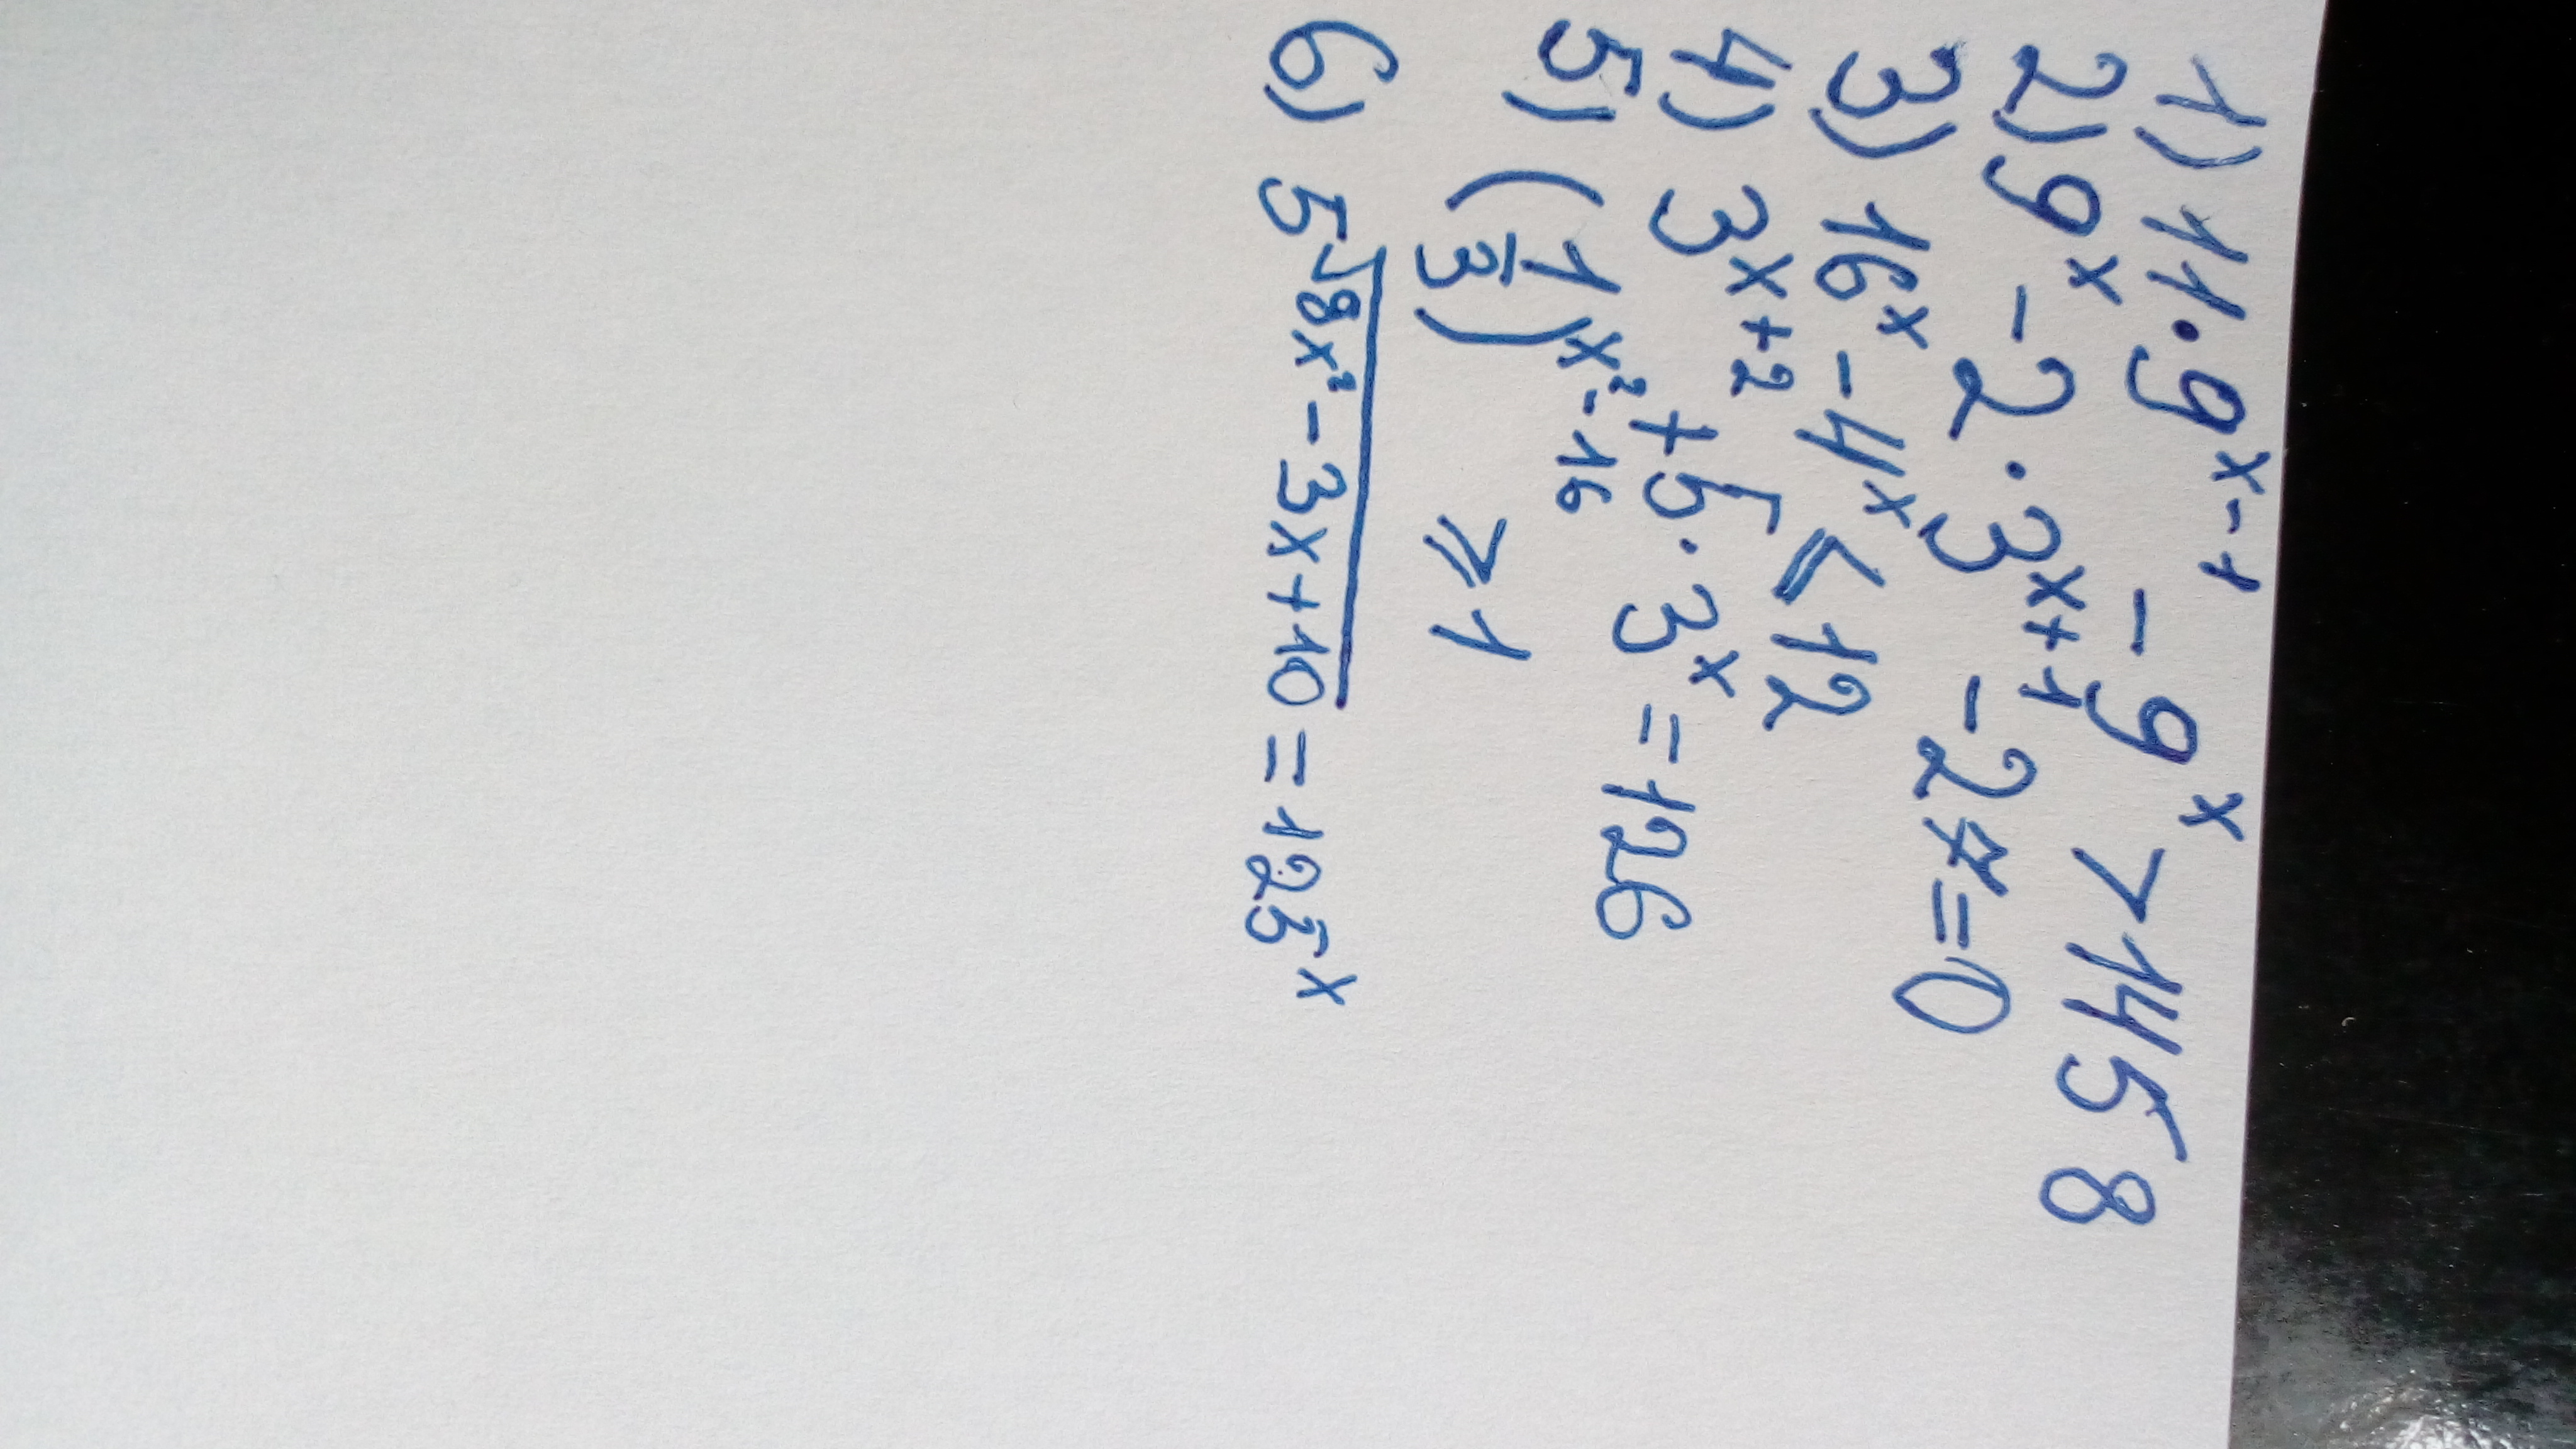 1) 11 · 9^(x-1) - 9^x > 1458
2) 9^x - 2 · 3^(x+1) - 27 = 0
3) 16^x - 4^x ⩽ 12
4) 3^(x+2) + 5 · 3^x = 126
5) (1/3)^(x²-16) ⩾ 1
6) 5^√(8x² - 3x + 10) = 125^x